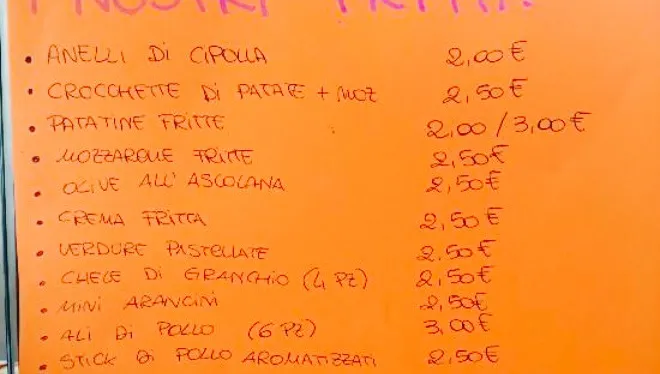 I NOSTRI FRITTI!
• ANELLI DI CIPOLLA 2,00€
• CROCCHETTE DI PATATE + MOZ 2,50€
• PATATINE FRITTE 2,00 / 3,00€
• MOZZARELLE FRITTE 2,50€
• OLIVE ALL'ASCOLANA 2,50€
• CREMA FRITTA 2,50€
• VERDURE PASTELLATE 2,50€
• CHELE DI GRANCHIO (4 PZ) 2,50€
• MINI ARANCINI 2,50€
• ALI DI POLLO (6 PZ) 3,00€
• STICK DI POLLO AROMATIZZATI 2,50€